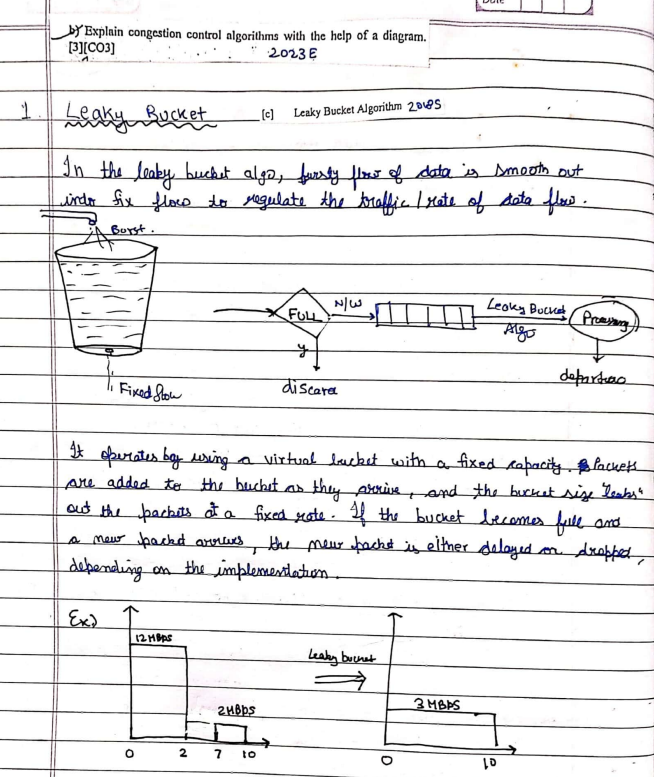 Date
b) Explain congestion control algorithms with the help of a diagram.
[3][CO3]
2023E
1. Leaky Bucket [c] Leaky Bucket Algorithm 2018S
In the leaky bucket algo, bursty flow of data is smooth out
into fix flow to regulate the traffic / rate of data flow.
Burst.
Fixed flow
FULL
N/W
y
discard
Leaky Bucket
Algo
Processing
It operates by using a virtual bucket with a fixed capacity. Packets
are added to the bucket as they arrive, and the bucket size "leaks"
out the packets at a fixed rate. If the bucket becomes full and
a new packet arrives, the new packet is either delayed or dropped,
depending on the implementation.
Ex)
12 MBPS
2MBPS
0 2 7 10
Leaky bucket
3 MBPS
0 10